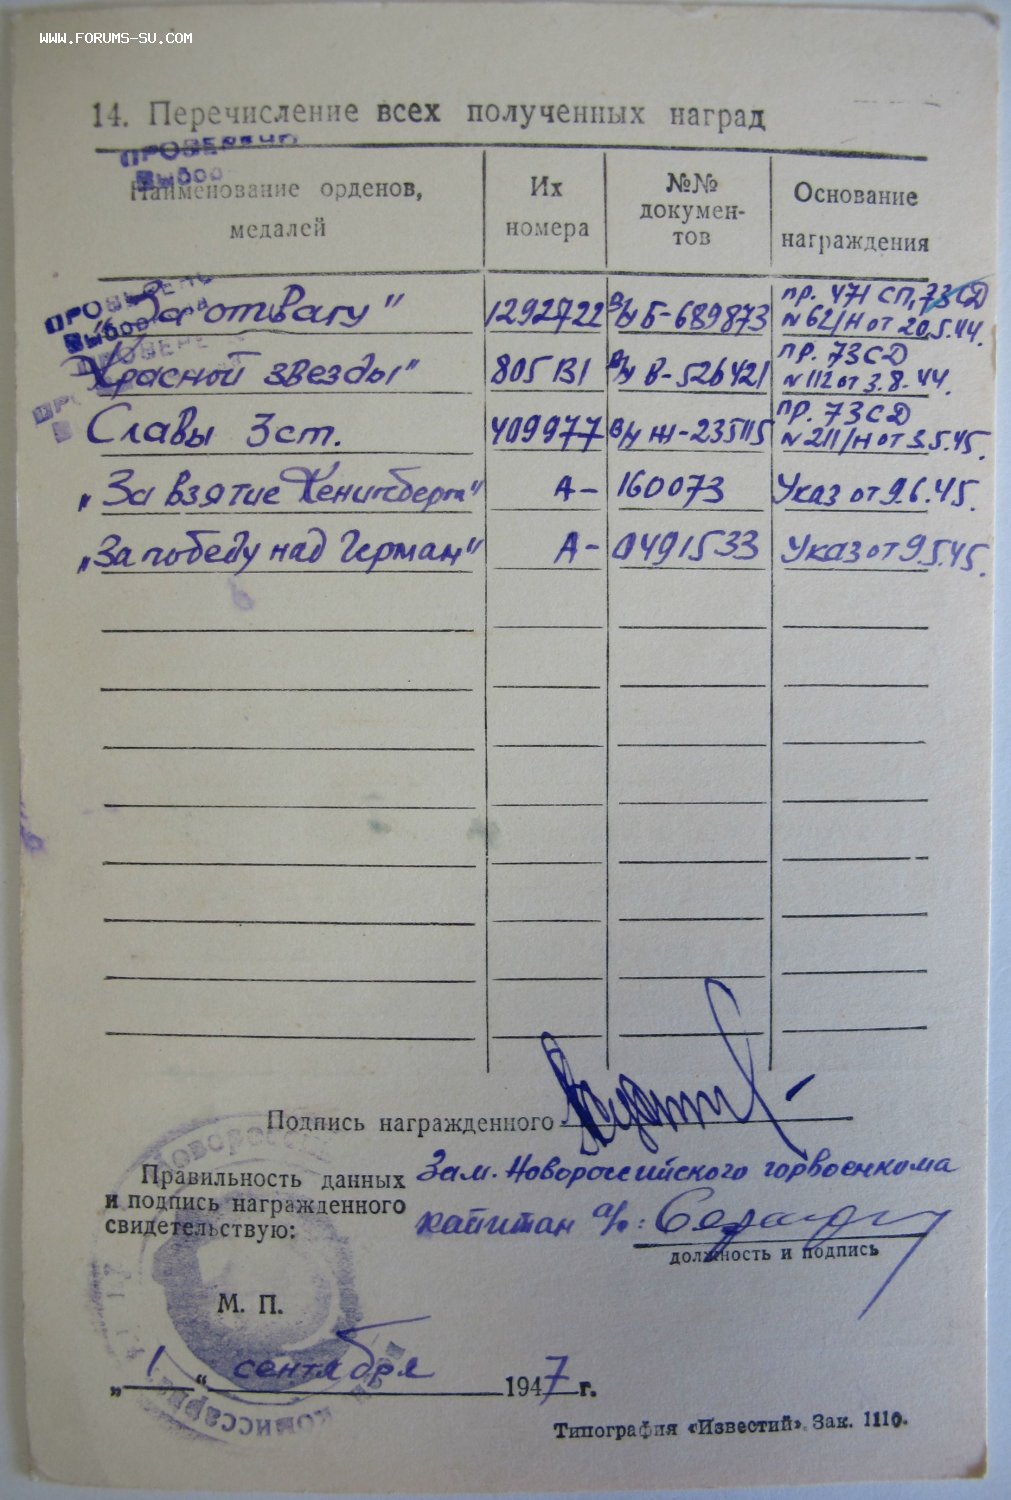 WWW.FORUMS-SU.COM
14. Перечисление всех полученных наград
ПРОВЕРЕНО
Наименование орденов, медалей
Их номера
№№ докумен-тов
Основание награждения
„За отвагу" 1292722 В/Ч Б-689873 пр. 471 СП, 73 СД N 62/Н от 20.5.44.
Красной звезды" 805131 В-526421 пр. 73 СД N 112 от 3.8.44.
Славы 3 ст. 409977 Ж-235115 пр. 73 СД N 211/Н от 3.5.45.
„За взятие Кенигсберга" А- 160073 Указ от 9.6.45.
„За победу над Герман" А- 0491533 Указ от 9.5.45.
Подпись награжденного
Правильность данных
и подпись награжденного
свидетельствую:
Зам. Новороссийского горвоенкома
капитан а/с:
должность и подпись
М. П.
„1" сентября 1947 г.
Типография «Известий». Зак. 1110.